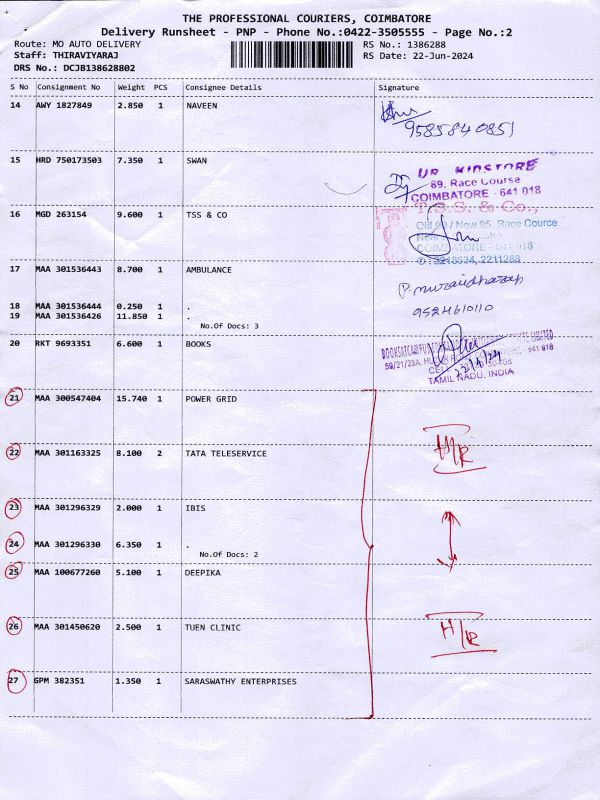 THE PROFESSIONAL COURIERS, COIMBATORE
Delivery Runsheet - PNP - Phone No.:0422-3505555 - Page No.:2
Route: MO AUTO DELIVERY RS No.: 1386288
Staff: THIRAVIYARAJ RS Date: 22-Jun-2024
DRS No.: DCJB138628802
S No Consignment No Weight PCS Consignee Details Signature
14 AWY 1827849 2.850 1 NAVEEN
9585840851
15 HRD 750173503 7.350 1 SWAN
UR KIDSTORE
89, Race Course
COIMBATORE - 641 018
16 MGD 263154 9.600 1 TSS & CO
T.S.S. & Co.,
Old 90 / New 95, Race Cource
COIMBATORE - 641 018
2218634, 2211288
17 MAA 301536443 8.700 1 AMBULANCE
18 MAA 301536444 0.250 1 .
19 MAA 301536426 11.850 1 .
9524610110
No.Of Docs: 3
20 RKT 9693351 6.600 1 BOOKS
LIMITED
59/21/23A, - 641 018
22/6/24
TAMIL NADU, INDIA
21 MAA 300547404 15.740 1 POWER GRID
22 MAA 301163325 8.100 2 TATA TELESERVICE
H/R
23 MAA 301296329 2.000 1 IBIS
24 MAA 301296330 6.350 1 .
No.Of Docs: 2
25 MAA 100677260 5.100 1 DEEPIKA
26 MAA 301450620 2.500 1 TUEN CLINIC
H/R
27 GPM 382351 1.350 1 SARASWATHY ENTERPRISES